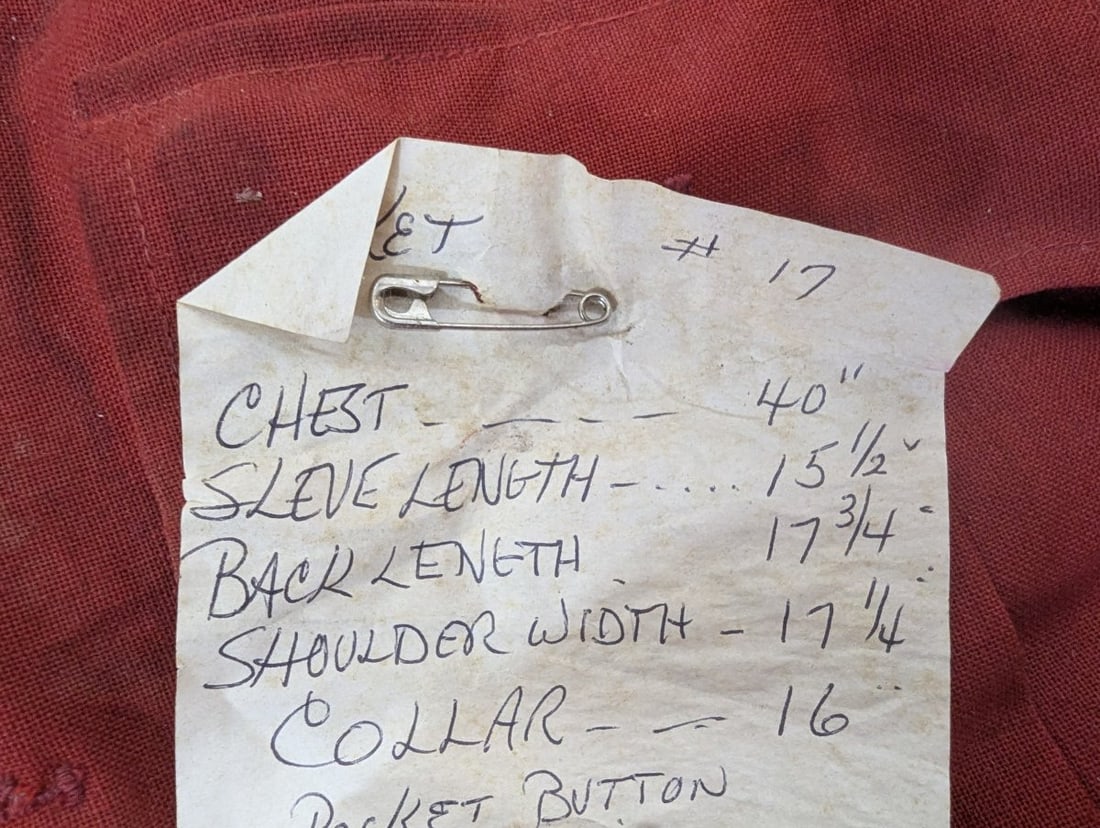 KET # 17
CHEST - — - — 40"
SLEVE LENGTH - ..... 15 1/2"
BACK LENGTH . 17 3/4"
SHOULDER WIDTH - 17 1/4"
COLLAR - — 16"
POCKET BUTTON